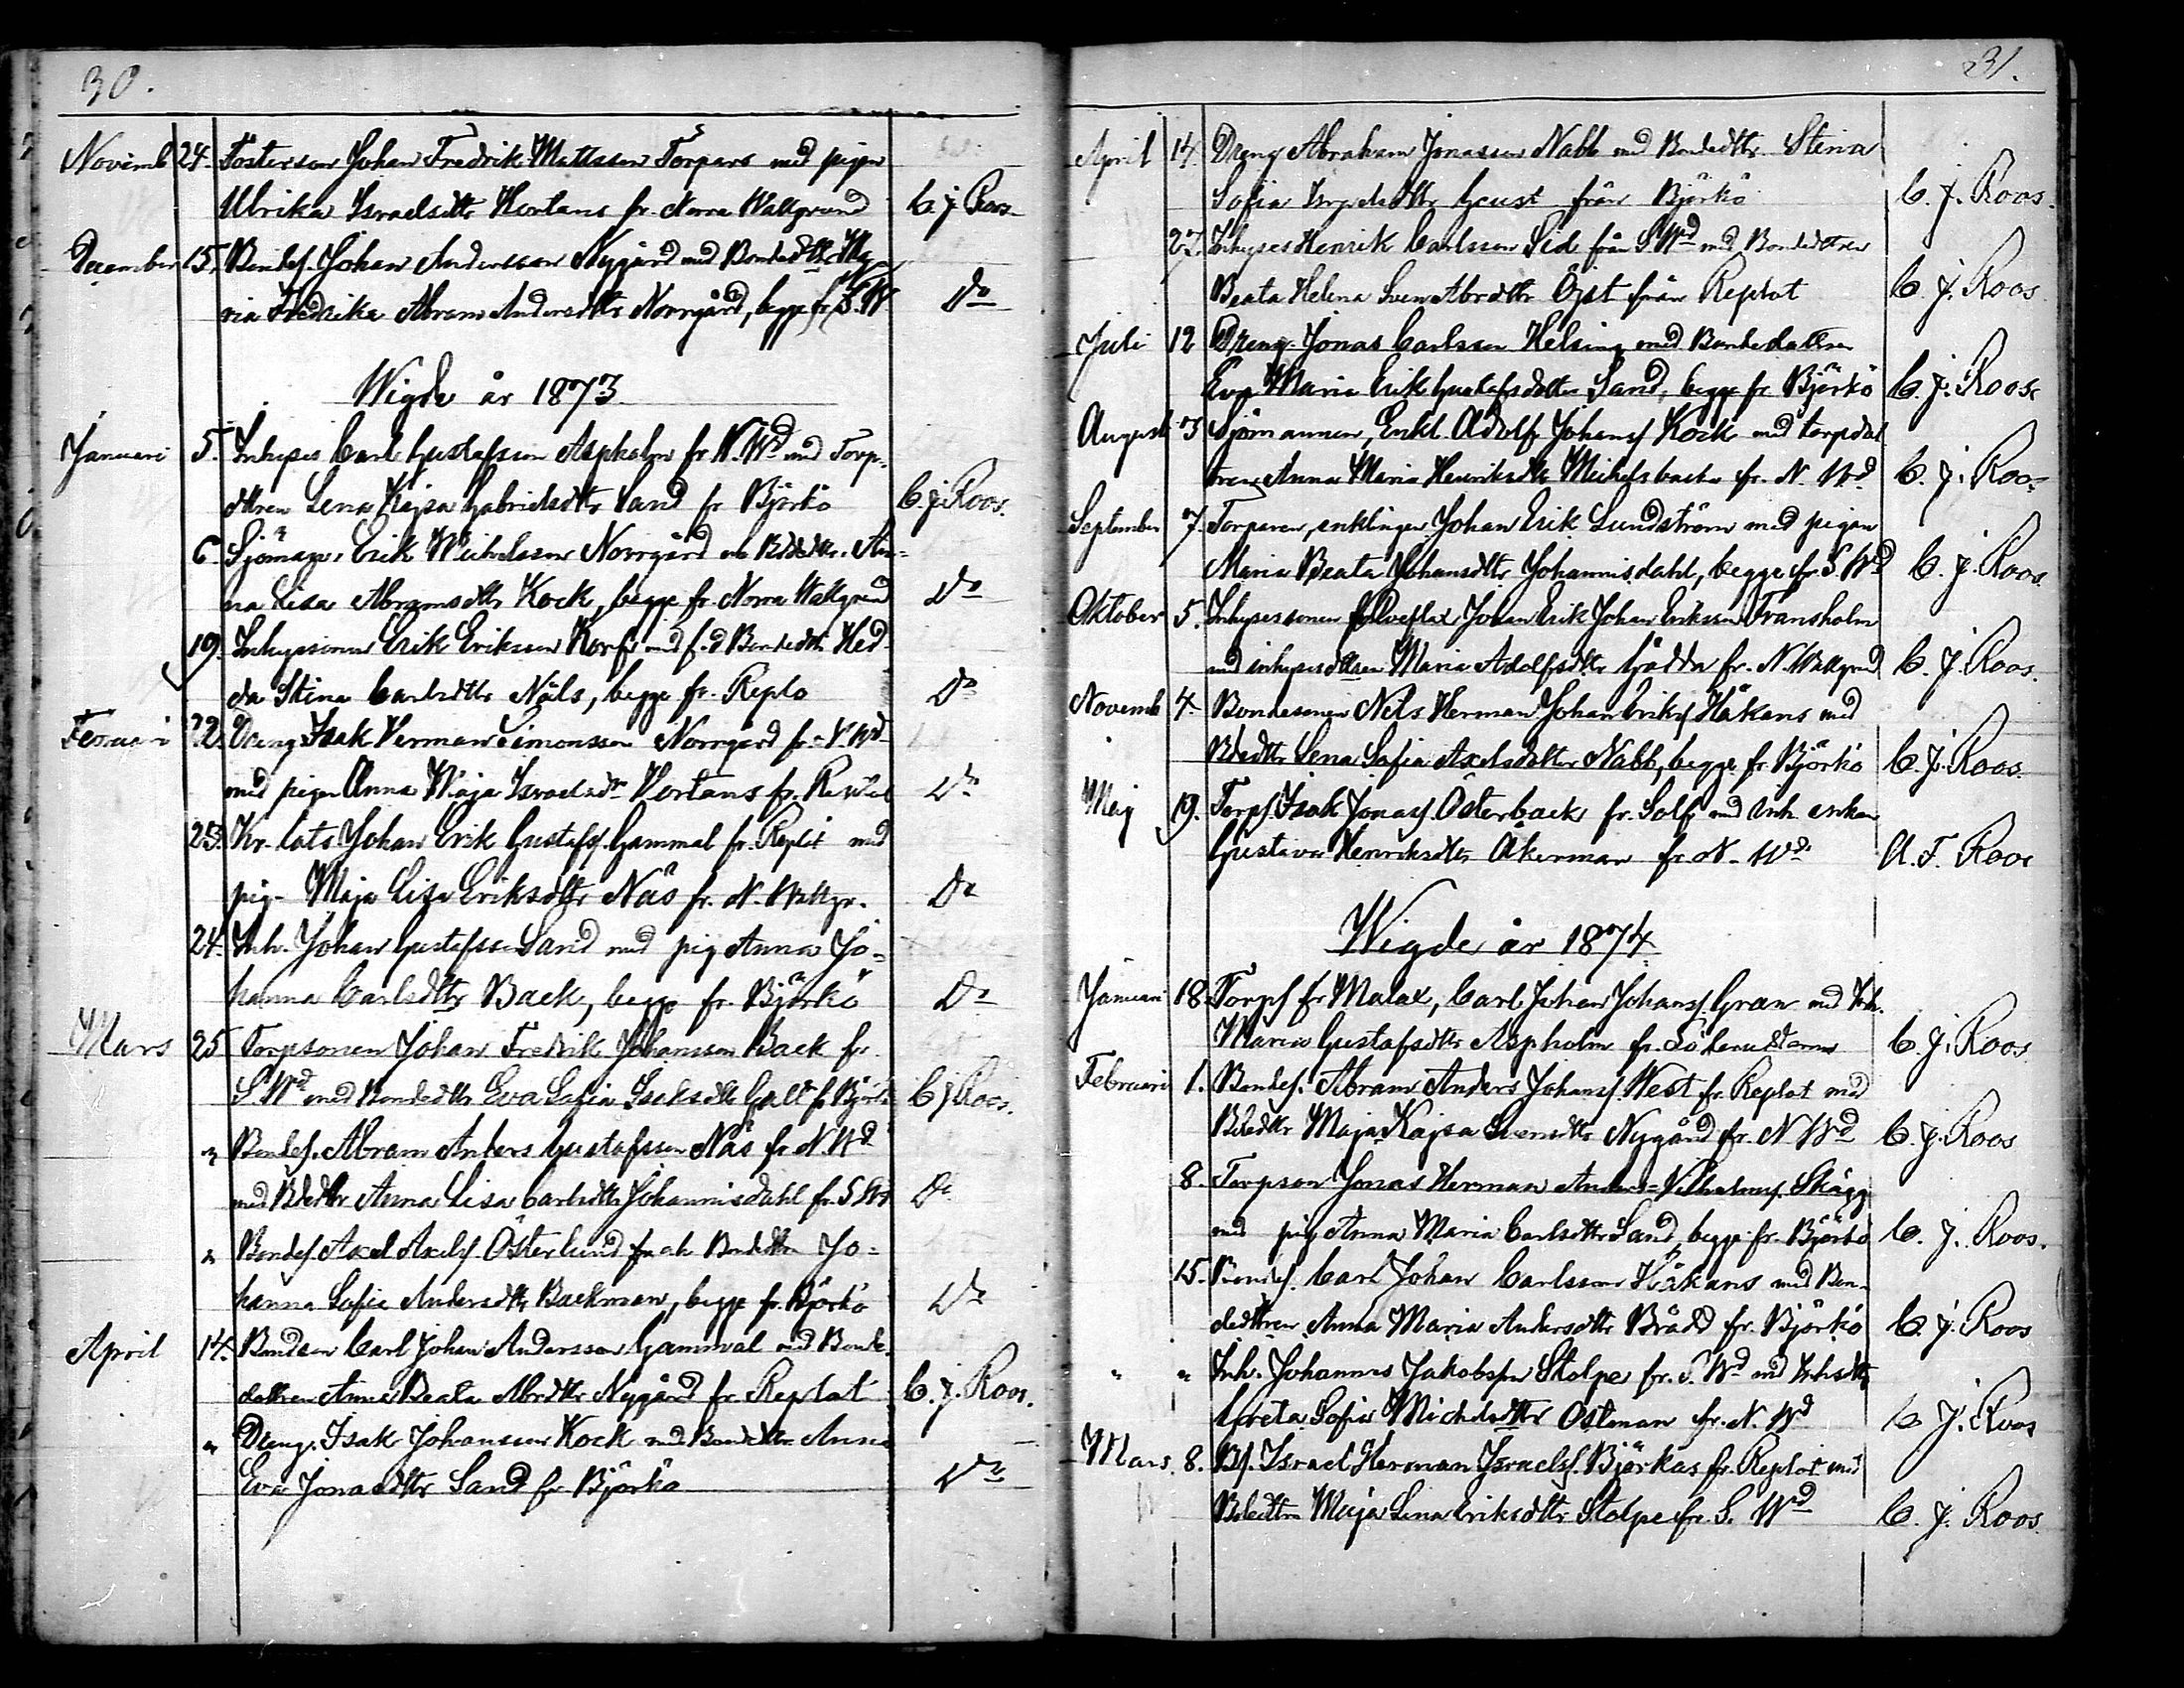 30.
Novemb 24. Fosterson Johan Fredrik Mattsson Torpars med pigan
Ulrika Israelsdttr Hortans fr. Norra Wallgrund C. J. Roos.
December 15. Bondes. Johan Andersson Nygård med Bondedttr Ma-
ria Fredrika Abram Andersdttr Norrgård, begge fr. S. W. Do
Wigde år 1873
Januari 5. Inhyses Carl Gustafsson Aspholm fr. N. Wd med Torp-
dttren Lena Kajsa Gabrielsdttr Sand fr Björkö C. J. Roos.
6. Sjöman Erik Michelsson Norrgård m Bdedttr. An-
na Lisa Abramsdttr Kock, begge fr. Norra Wallgrund Do
19. Inhysesonen Erik Eriksson Korf med f.d Bondedttr Hed-
da Stina Carlsdttr Nåls, begge fr. Replo Do
Februari 2. Dreng Isak Herman Simonsson Norrgård fr. N. Wd
med pigan Anna Maja Israelsdtr Hertans fr. Do
23. Kr. lots Johan Erik Gustafss. Gammal fr. Replot med
pig. Maja Lisa Eriksdttr Näs fr. N. Wallgr. Do
24. Inh. Johan Gustafsson Sand med pig Anna Jo-
hanna Carlsdttr Back, begge fr. Björkö Do
Mars 25 Torpsonen Johan Fredrik Johansson Back fr.
S. Wd med Bondedttr Eva Sofia Isaksdttr Galt fr Björkö C J Roos.
" Bondes. Abram Anders Gustafsson Näs fr N. Wd
med Bdedttr Anna Lisa Carlsdttr Johannisdahl fr. S Wd Do
" Bondes. Axel Axels. Österlund och Bondedttren Jo-
hanna Sofia Andersdttr Backman, begge fr. Björkö Do
April 14. Bondson Carl Johan Andersson Gammal med Bonde-
dottren Anna Beata Abrdttr Nygård fr. Replot C. J. Roos.
" Dreng. Isak Johansson Kock med Bondedttr Anna
Eva Jonasdttr Sand fr Björkö Do
31.
April 14. Dreng Abraham Jonasson Nabb med Bondedttr Stina
Sofia dttr Gust från Björkö C. J. Roos.
27. Inhyses Henrik Carlsson Sid från S. Wd med Bondedttren
Beata Helena Sven Abrdttr Öjst från Replot C. J. Roos
Juli 12 Dreng Jonas Carlsson Helsing med Bondedottren
Eva Maria Erik Gustafsdotter Sand, begge fr. Björkö C. J. Roos
Augusti 3 Sjömannen, Enkl. Adolf Johanss Kock med torpdot
tren Anna Maria Henriksdttr Michelsbacka fr. N. Wd C. J. Roos
September 7. Torparen, enklingen Johan Erik Lundström med pigan
Maria Beata Johansdttr Johannisdahl, begge fr. S. Wd C. J. Roos.
Oktober 5. Inhysessonen Johan Erik Johan Eriksson Fransholm
med inhysesdttren Maria Adolfsdttr Gädda fr. N. Wallgrund C. J. Roos.
Novemb 4. Bondesonen Nils Herman Johan Eriks. Håkans med
Bdedttr Lena Sofia Axelsdotter Nabb, begge fr Björkö C. J. Roos.
Maj 19. Torps. Isak Jonass. Österback fr. Solf med Inh. enkan
Gustava Henriksdttr Åkerman fr. N. Wd A. F. Roos
Wigde år 1874
Januari 18. Torps fr Malax, Carl Johan Johanss. Gran med Inh.
Maria Gustafsdttr Aspholm fr. C. J. Roos
Februari 1. Bondes. Abram Anders Johanss. West fr. Replot med
Bdedttr Maja Kajsa Svensdttr Nygård fr. N Wd C. J. Roos
8. Torpson Jonas Herman Anders-Vilhelmss. Skägg
med pig Anna Maria Carlsdttr Sand, begge fr. Björkö C. J. Roos.
15. Bondes. Carl Johan Carlsson Håkans med Bon-
dedttren Anna Maria Andersdttr Brådd fr. Björkö C. J. Roos
" " Inh. Johannes Jakobsson Stolpe fr. S. Wd med Inhsdttr
Greta Sofia Michelsdttr Östman fr. N. Wd C J. Roos
Mars 8. Bs. Israel Herman Israelss. Björkas fr. Replot med
Bdedttr Maja Lena Eriksdttr Stolpe fr. S. Wd C. J. Roos.